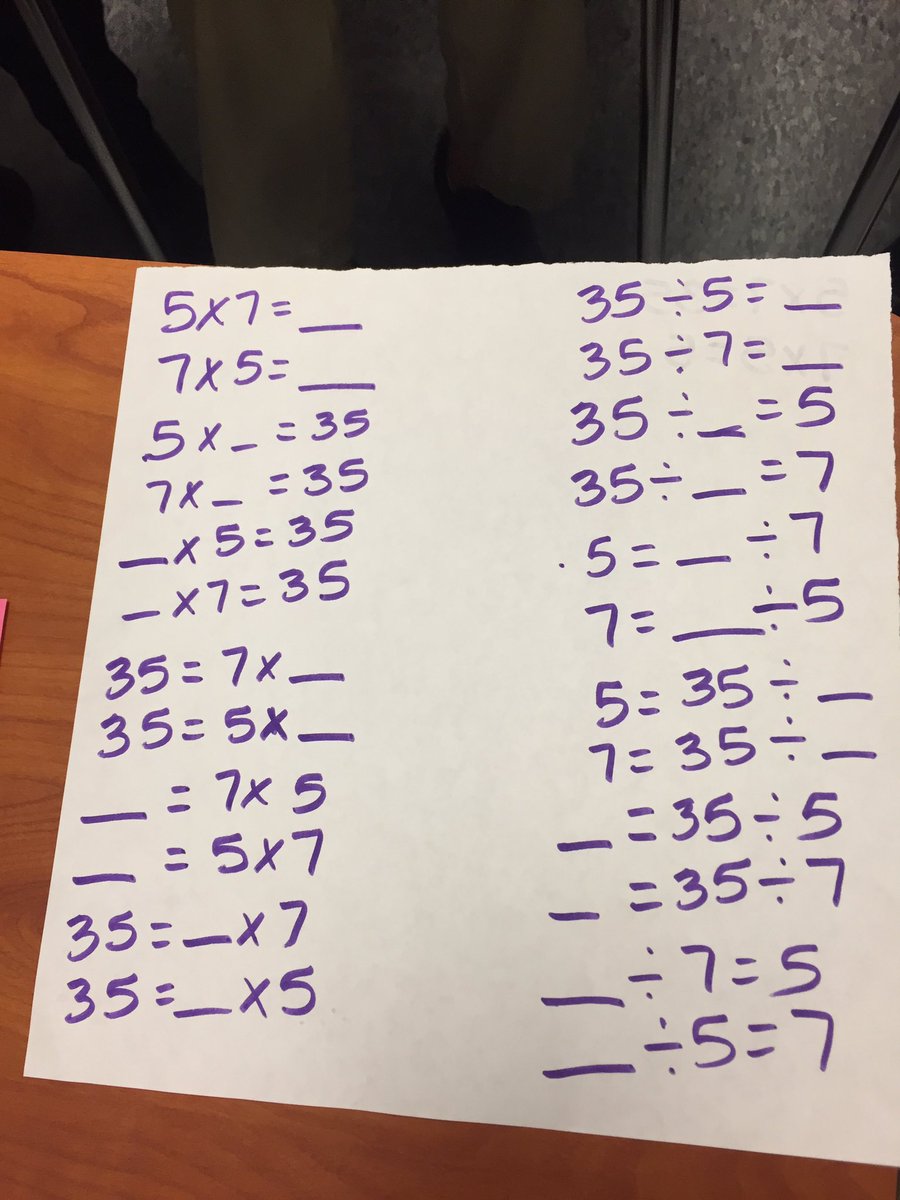 5x7= __
7x5= __
5x_ =35
7x_ =35
_x5=35
_x7=35
35=7x_
35=5x_
_ =7x5
_ =5x7
35=_x7
35=_x5
35÷5= _
35÷7= _
35÷_=5
35÷_=7
5= _÷7
7= __÷5
5=35÷_
7=35÷_
_=35÷5
_ =35÷7
__÷7=5
__÷5=7